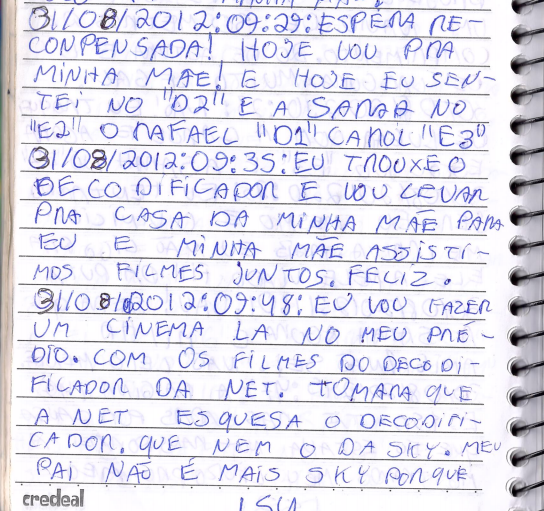 31/08/2012:09:29:ESPERA RE-
CONPENSADA! HOJE VOU PRA
MINHA MÃE! E HOJE EU SEN-
TEI NO "D2" E A SARAH NO
"E2" O RAFAEL "D1" CAROL "E3"
31/08/2012:09:35:EU TROUXE O
DECODIFICADOR E VOU LEVAR
PRA CASA DA MINHA MÃE PARA
EU E MINHA MÃE ASSISTI-
MOS FILMES JUNTOS. FELIZ.
31/08/2012:09:48:EU VOU FAZER
UM CINEMA LA NO MEU PRÉ-
DIO. COM OS FILMES DO DECODI-
FICADOR DA NET. TOMARA QUE
A NET ESQUESA O DECODIFI-
CADOR. QUE NEM O DA SKY. MEU
PAI NÃO É MAIS SKY PORQUE
credeal